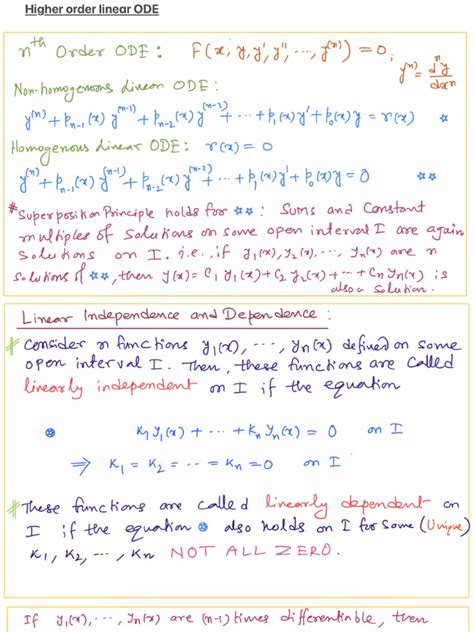 Higher order linear ODE
nth Order ODE : F(x, y, y', y'', ..., y^(n)) = 0 ; y^(n) = d^n y / dx^n
Non-homogenous Linear ODE :
y^(n) + p_{n-1}(x) y^(n-1) + p_{n-2}(x) y^(n-2) + ... + p_1(x) y' + p_0(x) y = r(x) ☆
Homogenous Linear ODE : r(x) = 0
y^(n) + p_{n-1}(x) y^(n-1) + p_{n-2}(x) y^(n-2) + ... + p_1(x) y' + p_0(x) y = 0 ☆☆
# Superposition Principle holds for ☆☆ : Sums and Constant
multiples of solutions on some open interval I are again
solutions on I. i.e., if y_1(x), y_2(x), ..., y_n(x) are n
solutions of ☆☆, then y(x) = c_1 y_1(x) + c_2 y_2(x) + ... + c_n y_n(x) is
also a solution.
Linear Independence and Dependence :
# Consider n functions y_1(x), ..., y_n(x) defined on some
open interval I. Then, these functions are called
linearly independent on I if the equation
⊛ k_1 y_1(x) + ... + k_n y_n(x) = 0 on I
⇒ k_1 = k_2 = ... = k_n = 0 on I
# These functions are called linearly dependent on
I if the equation ⊛ also holds on I for some (Unique)
k_1, k_2, ..., k_n NOT ALL ZERO.
If y_1(x), ..., y_n(x) are (n-1) times differentiable, then